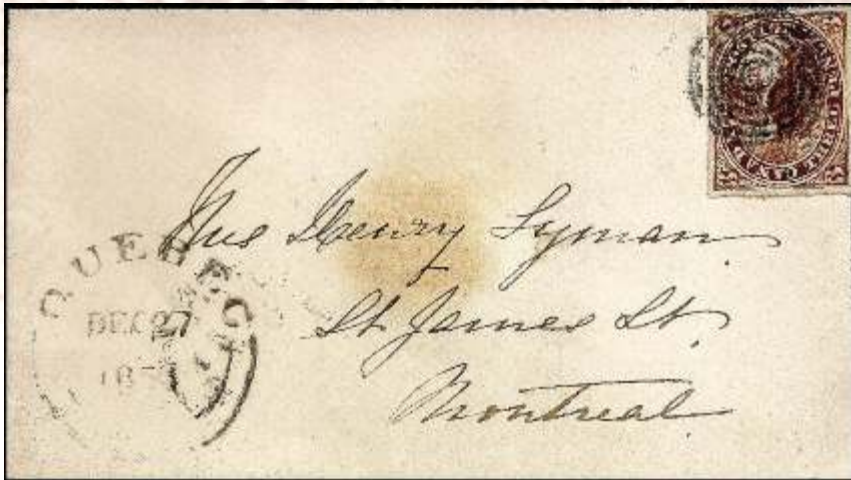 Mrs Henry Lyman
St James St.
Montreal
QUEBEC
DEC 27
18